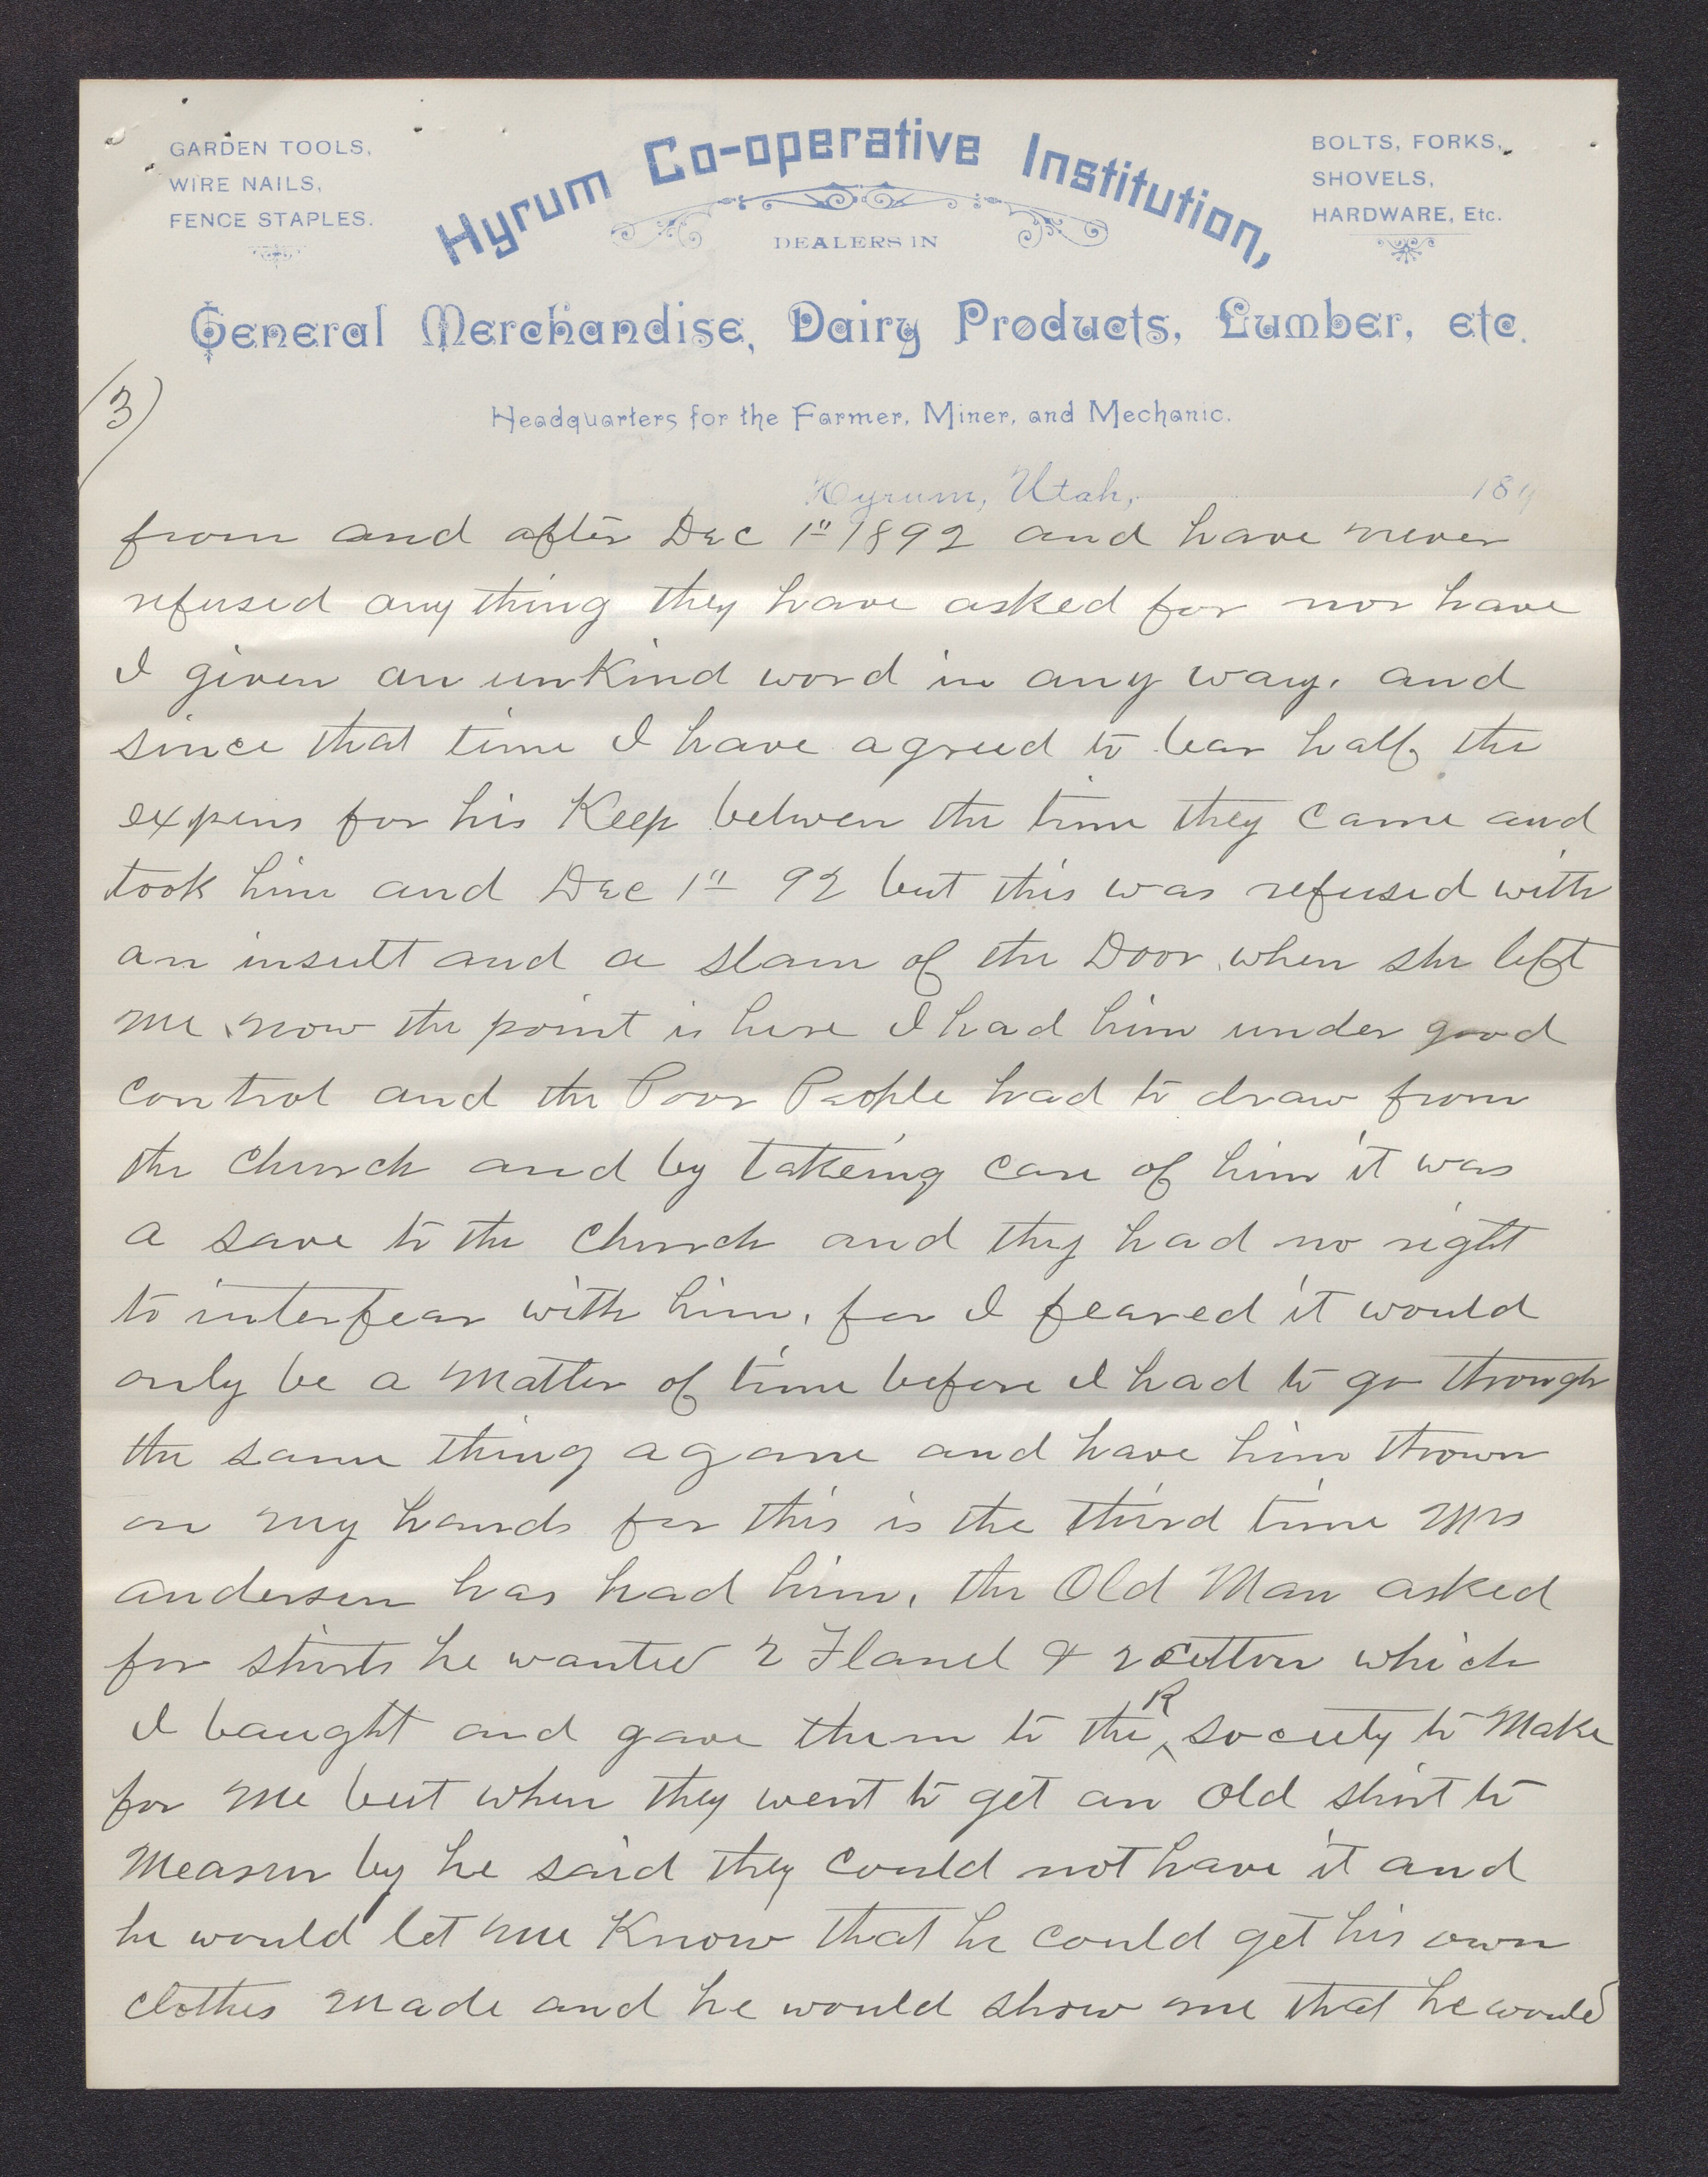 GARDEN TOOLS,
WIRE NAILS,
FENCE STAPLES.
Hyrum Co-operative Institution,
DEALERS IN
BOLTS, FORKS,
SHOVELS,
HARDWARE, Etc.
General Merchandise, Dairy Products, Lumber, etc.
3)
Headquarters for the Farmer, Miner, and Mechanic.
Hyrum, Utah, 189
from and after Dec 1" 1892 and have never
refused any thing they have asked for nor have
I given an unkind word in any way. and
since that time I have agreed to bear half the
expens for his Keep betwen the time they came and
took him and Dec 1" 92 but this was refused with
an insult and a slam of the Door when she left
me. now the point is here I had him under good
control and the Poor People had to draw from
the church and by takeing care of him it was
a save to the church and they had no right
to interfear with him. for I feared it would
only be a matter of time before I had to go through
the same thing agane and have him thrown
on my hands for this is the third time Mrs
andersen has had him. the Old Man asked
for shirts he wanted 2 Flanel & 2 cotton which
I baught and gave them to the R society to Make
for me but when they went to get an old shirt to
Measur by he said they could not have it and
he would let me Know that he could get his own
clothes made and he would show me that he would